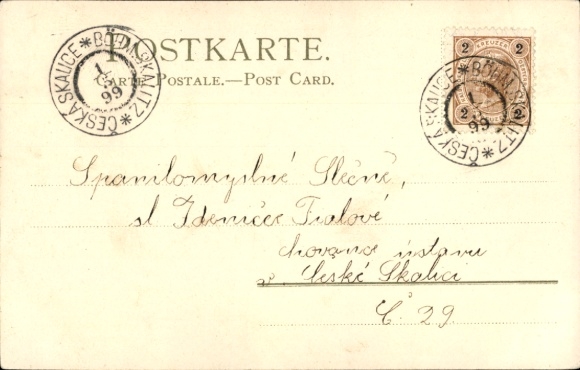 POSTKARTE.
Carte Postale.—Post Card.
ČESKÁ SKALICE * BÖHM. SKALITZ *
1
5
99
2 KREUZER 2
2 2
ČESKÁ SKALICE * BÖHM. SKALITZ *
1
5
99
Spanilomyslné Slečně,
sl Zdeničce Fialové
chovance ústavu
v České Skalici
Č 29